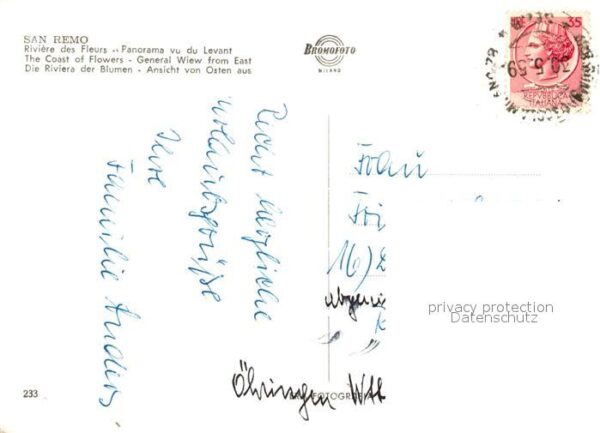 SAN REMO
Rivière des Fleurs - Panorama vu du Levant
The Coast of Flowers - General Wiew from East
Die Riviera der Blumen - Ansicht von Osten aus
BROMOFOTO
MILANO
35
30.5.59
Recht herzliche
Urlaubsgrüße
Ihre
Familie Anders
Frau
16)
privacy protection
Datenschutz
Öhringen Wtt
FOTOGRAFIA
233